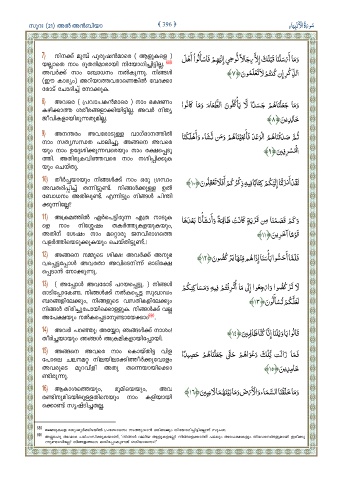 സൂറ: (21) അൽ അൻബിയാ ( 396 ) سُورَةُ الأَنْبِيَاء
7) നിനക്ക് മുമ്പ് പുരുഷൻമാരെ ( ആളുകളെ )
യല്ലാതെ നാം ദൂതൻമാരായി നിയോഗിച്ചിട്ടില്ല.
അവർക്ക് നാം ബോധനം നൽകുന്നു. നിങ്ങൾ
(ഈ കാര്യം) അറിയാത്തവരാണെങ്കിൽ വേദക്കാ
രോട് ചോദിച്ച് നോക്കുക.
وَمَا أَرْسَلْنَا قَبْلَكَ إِلَّا رِجَالًا نُّوحِي إِلَيْهِمْ فَاسْأَلُوا أَهْلَ
الذِّكْرِ إِن كُنتُمْ لَا تَعْلَمُونَ ﴿٧﴾
8) അവരെ ( പ്രവാചകൻമാരെ ) നാം ഭക്ഷണം
കഴിക്കാത്ത ശരീരങ്ങളാക്കിയിട്ടില്ല. അവർ നിത്യ
ജീവികളായിരുന്നതുമില്ല.
وَمَا جَعَلْنَاهُمْ جَسَدًا لَّا يَأْكُلُونَ الطَّعَامَ وَمَا كَانُوا
خَالِدِينَ ﴿٨﴾
9) അനന്തരം അവരോടുള്ള വാഗ്ദാനത്തിൽ
നാം സത്യസന്ധത പാലിച്ചു. അങ്ങനെ അവരെ
യും നാം ഉദ്ദേശിക്കുന്നവരെയും നാം രക്ഷപ്പെടു
ത്തി. അതിരുകവിഞ്ഞവരെ നാം നശിപ്പിക്കുക
യും ചെയ്തു.
ثُمَّ صَدَقْنَاهُمُ الْوَعْدَ فَأَنجَيْنَاهُمْ وَمَن نَّشَاءُ وَأَهْلَكْنَا
الْمُسْرِفِينَ ﴿٩﴾
10) തീർച്ചയായും നിങ്ങൾക്ക് നാം ഒരു ഗ്രന്ഥം
അവതരിപ്പിച്ച് തന്നിട്ടുണ്ട്. നിങ്ങൾക്കുള്ള ഉൽ
ബോധനം അതിലുണ്ട്. എന്നിട്ടും നിങ്ങൾ ചിന്തി
ക്കുന്നില്ലേ?
لَقَدْ أَنزَلْنَا إِلَيْكُمْ كِتَابًا فِيهِ ذِكْرُكُمْ أَفَلَا تَعْقِلُونَ ﴿١٠﴾
11) അക്രമത്തിൽ ഏർപെട്ടിരുന്ന എത്ര നാടുക
ളെ നാം നിശ്ശേഷം തകർത്തുകളയുകയും,
അതിന് ശേഷം നാം മറ്റൊരു ജനവിഭാഗത്തെ
വളർത്തിയെടുക്കുകയും ചെയ്തിട്ടുണ്ട്.!
وَكَمْ قَصَمْنَا مِن قَرْيَةٍ كَانَتْ ظَالِمَةً وَأَنشَأْنَا بَعْدَهَا
قَوْمًا آخَرِينَ ﴿١١﴾
12) അങ്ങനെ നമ്മുടെ ശിക്ഷ അവർക്ക് അനുഭ
വപ്പെട്ടപ്പോൾ അവരതാ അവിടെനിന്ന് ഓടിരക്ഷ
പ്പെടാൻ നോക്കുന്നു.
فَلَمَّا أَحَسُّوا بَأْسَنَا إِذَا هُم مِّنْهَا يَرْكُضُونَ ﴿١٢﴾
13) ( അപ്പോൾ അവരോട് പറയപ്പെട്ടു. ) നിങ്ങൾ
ഓടിപ്പോകേണ്ട. നിങ്ങൾക്ക് നൽകപ്പെട്ട സുഖാഡം
ബരങ്ങളിലേക്കും, നിങ്ങളുടെ വസതികളിലേക്കും
നിങ്ങൾ തിരിച്ചുപോയിക്കൊള്ളുക. നിങ്ങൾക്ക് വല്ല
അപേക്ഷയും നൽകപ്പെടാനുണ്ടായേക്കാം.
لَا تَرْكُضُوا وَارْجِعُوا إِلَىٰ مَا أُتْرِفْتُمْ فِيهِ وَمَسَاكِنِكُمْ
لَعَلَّكُمْ تُسْأَلُونَ ﴿١٣﴾
14) അവർ പറഞ്ഞു: അയ്യോ; ഞങ്ങൾക്ക് നാശം!
തീർച്ചയായും ഞങ്ങൾ അക്രമികളായിപ്പോയി.
قَالُوا يَا وَيْلَنَا إِنَّا كُنَّا ظَالِمِينَ ﴿١٤﴾
15) അങ്ങനെ അവരെ നാം കൊയ്തിട്ട വിള
പോലെ ചലനമറ്റ നിലയിലാക്കിത്തീർക്കുവോളം
അവരുടെ മുറവിളി അതു തന്നെയായിക്കൊ
ണ്ടിരുന്നു.
فَمَا زَالَت تِّلْكَ دَعْوَاهُمْ حَتَّىٰ جَعَلْنَاهُمْ حَصِيدًا
خَامِدِينَ ﴿١٥﴾
16) ആകാശത്തെയും, ഭൂമിയെയും, അവ
രണ്ടിനുമിടയിലുള്ളതിനെയും നാം കളിയായി
ക്കൊണ്ട് സൃഷ്ടിച്ചതല്ല.
وَمَا خَلَقْنَا السَّمَاءَ وَالْأَرْضَ وَمَا بَيْنَهُمَا لَاعِبِينَ ﴿١٦﴾